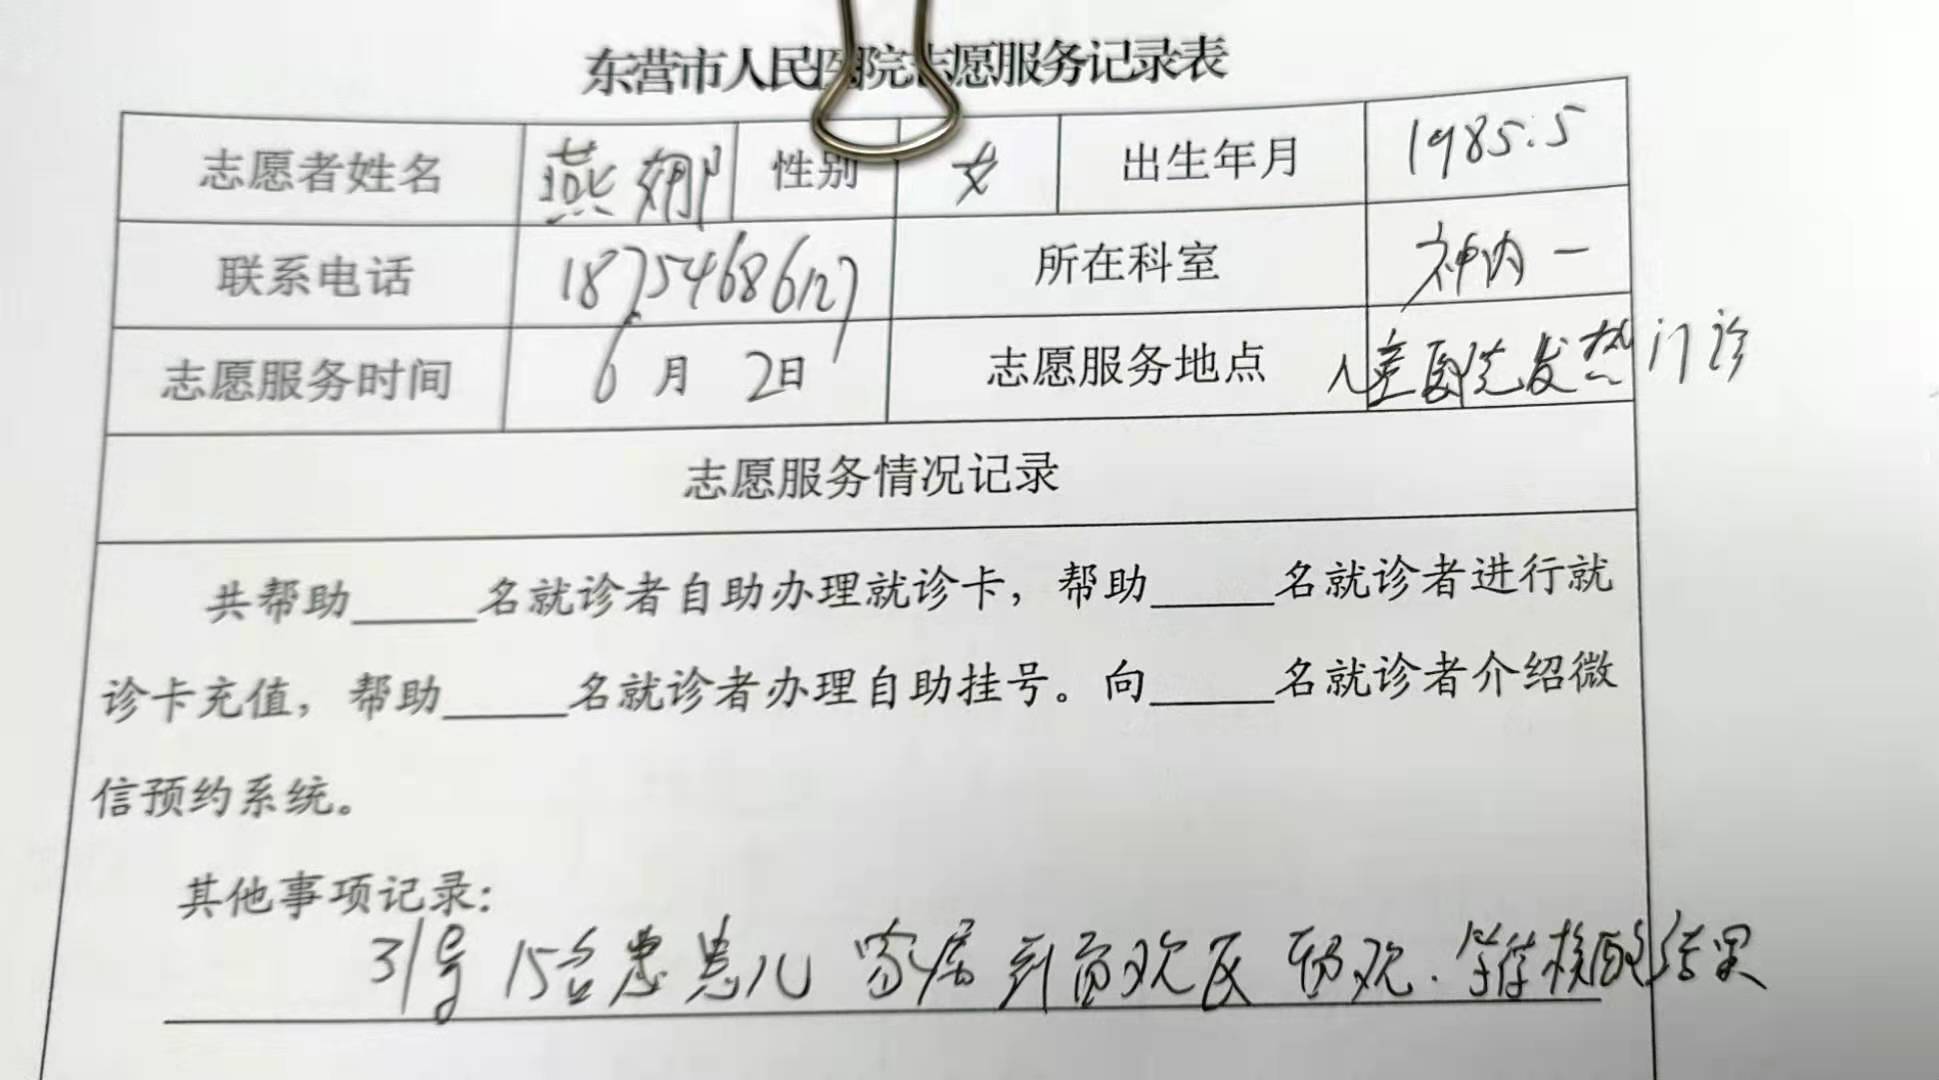 东营市人民医院志愿服务记录表
志愿者姓名 燕娜 性别 女 出生年月 1985.5
联系电话 18754686127 所在科室 神内一
志愿服务时间 6月2日 志愿服务地点 儿童医院发热门诊
志愿服务情况记录
共帮助_____名就诊者自助办理就诊卡，帮助_____名就诊者进行就
诊卡充值，帮助_____名就诊者办理自助挂号。向_____名就诊者介绍微
信预约系统。
其他事项记录：
31号 15 患儿 家属到 观 等待核酸结果